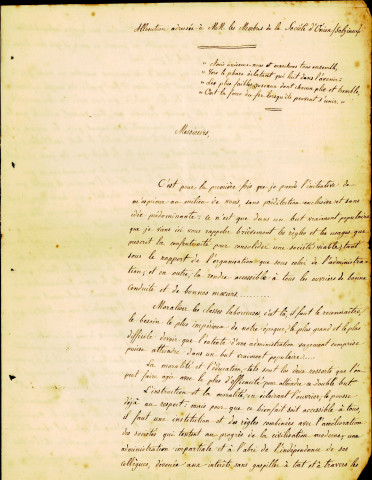 Allocution adressée à M.M. les Membres de la Société d'Union
" Amis unissons-nous et marchons tous ensemble,
" Vers le phare éclatant qui luit dans l'avenir;
" Des plus faibles roseaux dont chacun plie et tremble,
" C'est la force du fer lorsqu'ils peuvent s'unir. "
Messieurs,
C'est pour la première fois que je prends l'initiative de
m'exprimer au milieu de vous sans prédilection exclusive et sans
idée prédominante: ce n'est que dans un but vraiment populaire
que je vais ici vous rappeler brièvement les règles et les usages que
prescrit la confraternité pour consolider une société viable, tant
sous le rapport de l'organisation que sous celui de l'administra-
tion; et en outre, la rendre accessible à tous les ouvriers de bonne
conduite et de bonnes mœurs........
Moraliser les classes laborieuses c'est là, il faut le reconnaître,
le besoin le plus impérieux de notre époque, le plus grand et le plus
difficile devoir que l'entente d'une administration sagement comprise
puisse atteindre dans un but vraiment populaire:....
La moralité et l'éducation, tels sont les deux ressorts que l'on
peut faire agir avec le plus d'efficacité, pour atteindre ce double but
L'instruction et la moralité, en éclairant l'ouvrier, le pousse
déjà au respect: mais pour que ce bienfait soit accessible à tous,
il faut une institution et des règles combinées avec l'amélioration
des sociétés qui tendent au progrès de la civilisation moderne; une
administration impartiale et à l'abri de l'indépendance de ses
collègues, dévouée aux intérêts, sans gaspiller à tort et à travers les